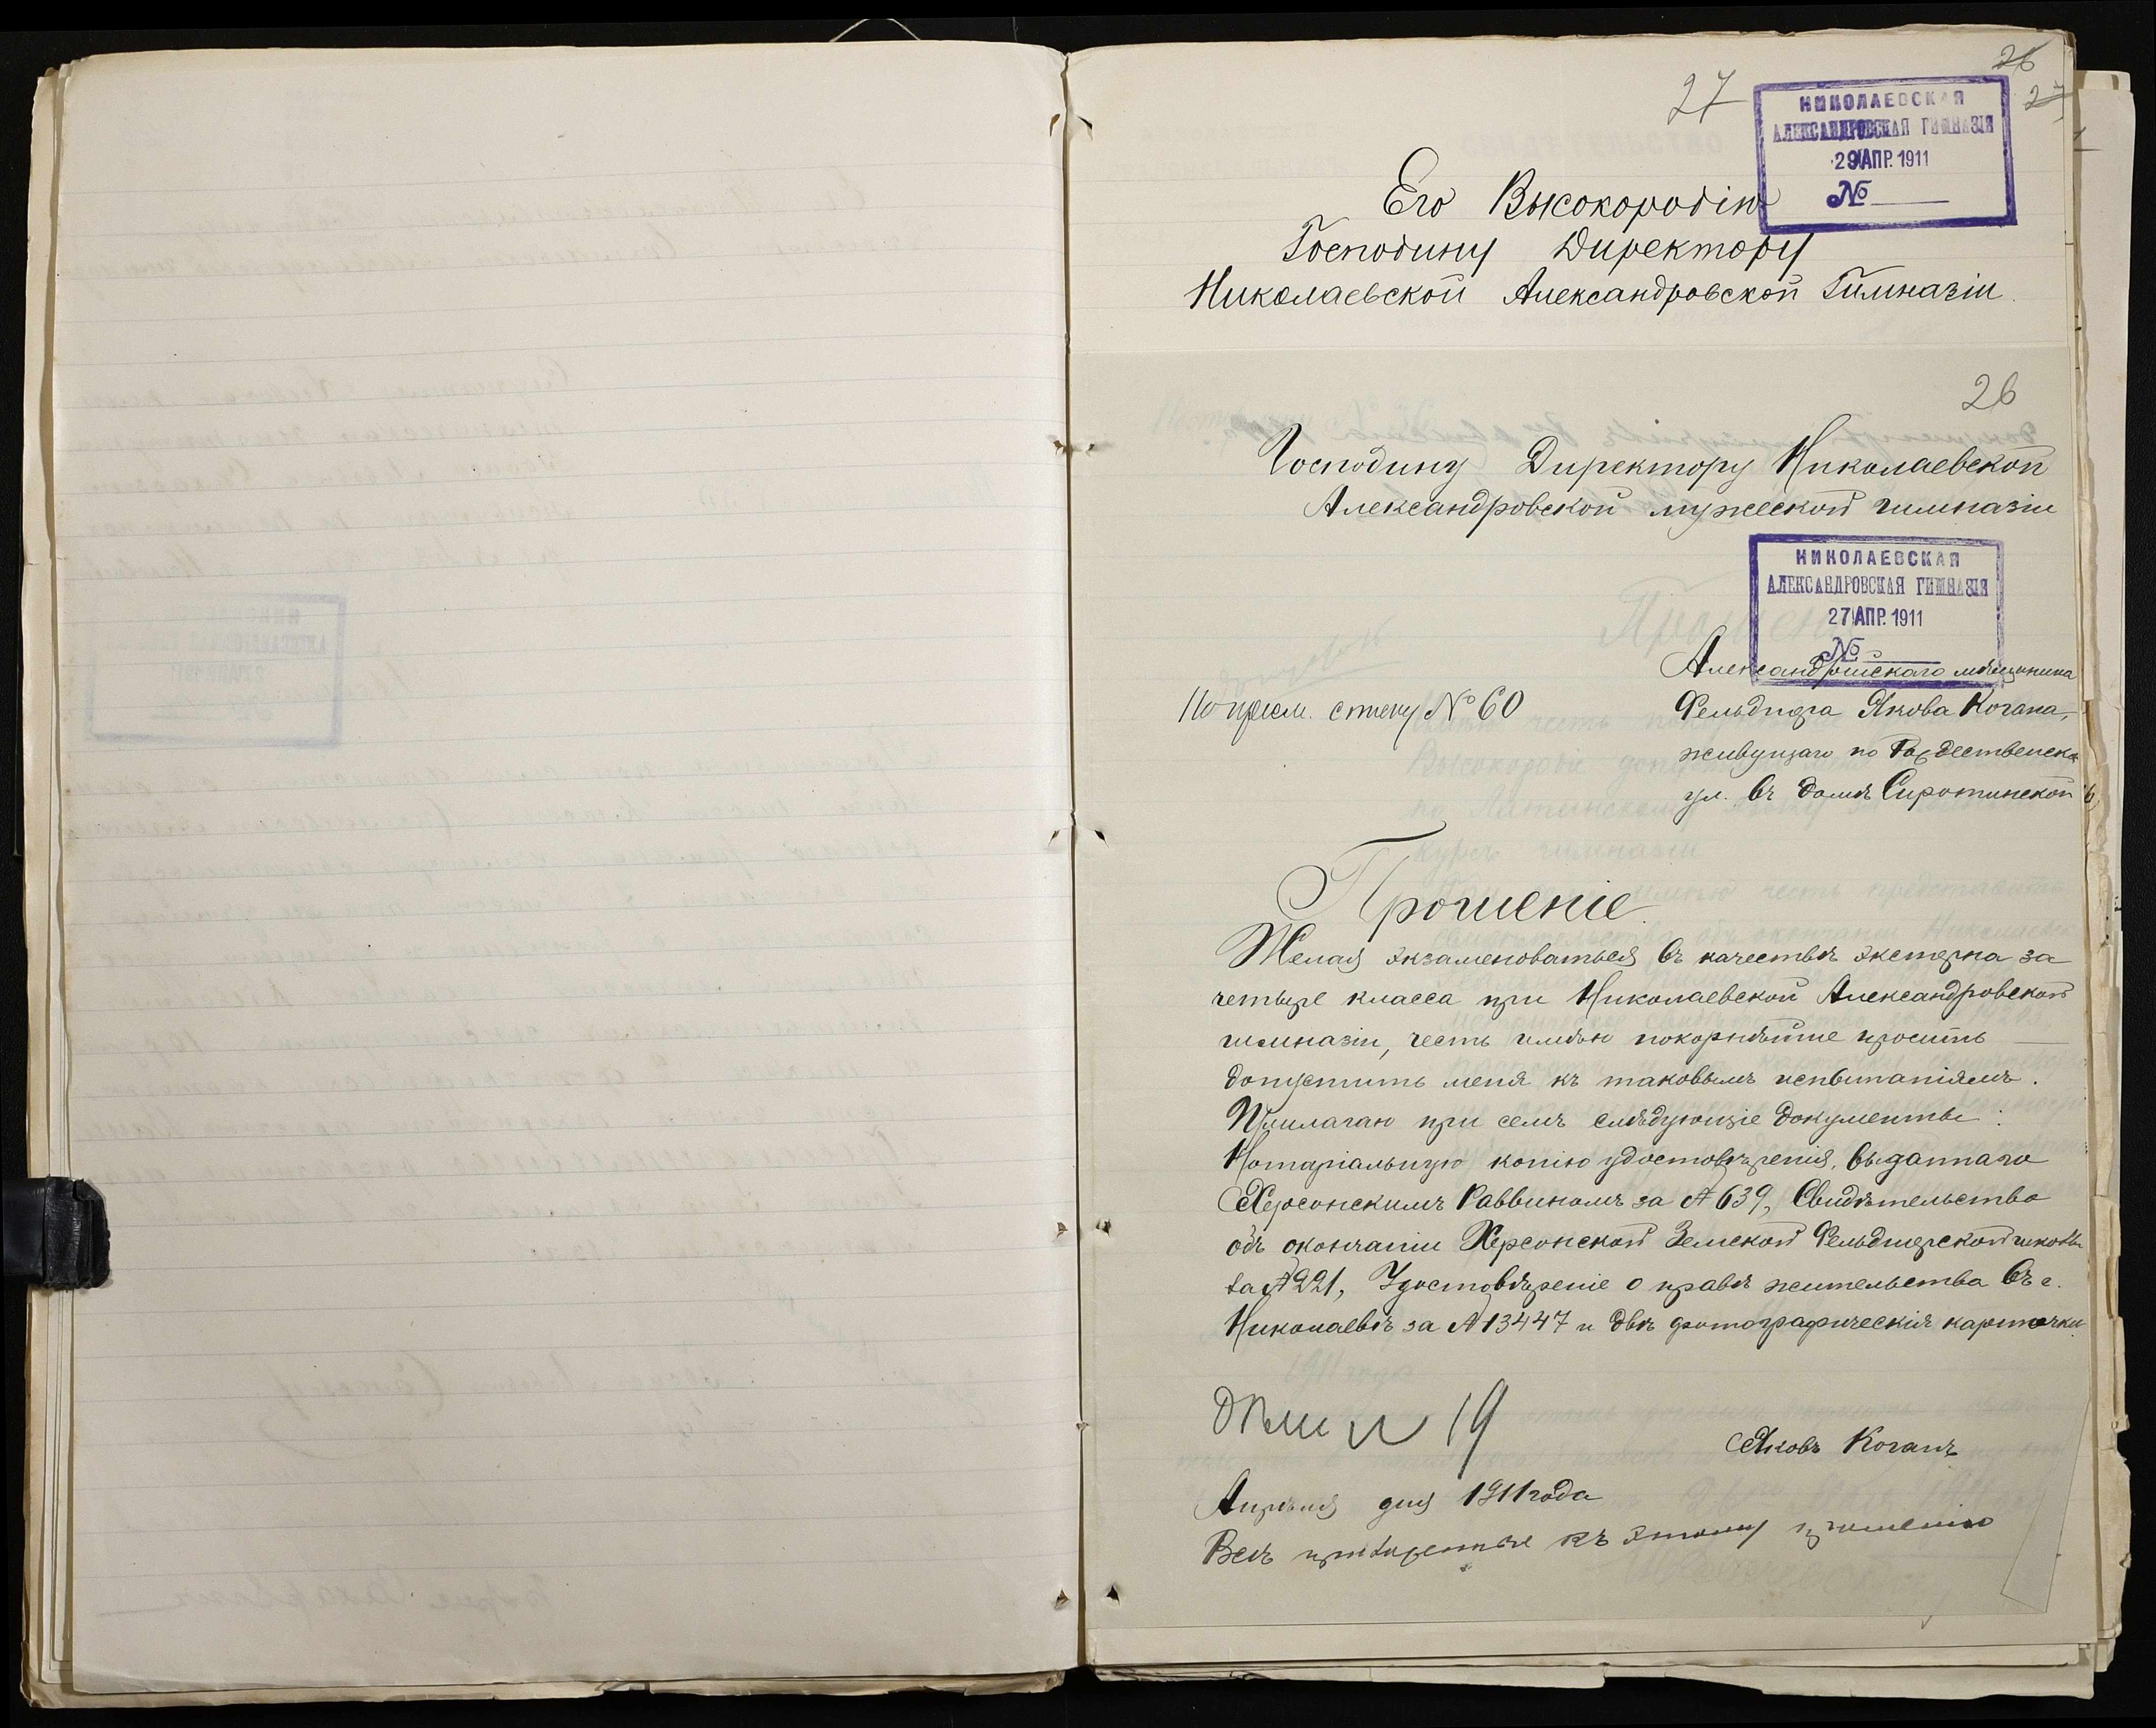 26
27
27
НИКОЛАЕВСКАЯ
АЛЕКСАНДРОВСКАЯ ГИМНАЗІЯ
29 АПР. 1911
№
Его Высокородію
Господину Директору
Николаевской Александровской Гимназіи.
26
Господину Директору Николаевской
Александровской мужеской гимназіи
НИКОЛАЕВСКАЯ
АЛЕКСАНДРОВСКАЯ ГИМНАЗІЯ
27 АПР. 1911
№
мѣщанина
№ 60
Фельдшера Якова Когана,
живущаго по Рождественск
ул. въ домѣ Сиротинской
Прошеніе
Желая экзаменоваться въ качествѣ экстерна за
четыре класса при Николаевской Александровской
гимназіи, честь имѣю покорнѣйше просить
допустить меня къ таковымъ испытаніямъ.
Прилагаю при семъ слѣдующіе документы:
Нотаріальную копію удостовѣренія, выданнаго
Херсонскимъ Раввиномъ за № 639, Свидѣтельство
объ окончаніи Херсонской Земской Фельдшерской школы
за № 221, Удостовѣреніе о правѣ жительства въ г.
Николаевѣ за № 13447 и двѣ фотографическія карточки.
№ 19
Яковъ Коганъ
Апрѣля дня 1911 года
къ этому прошенію